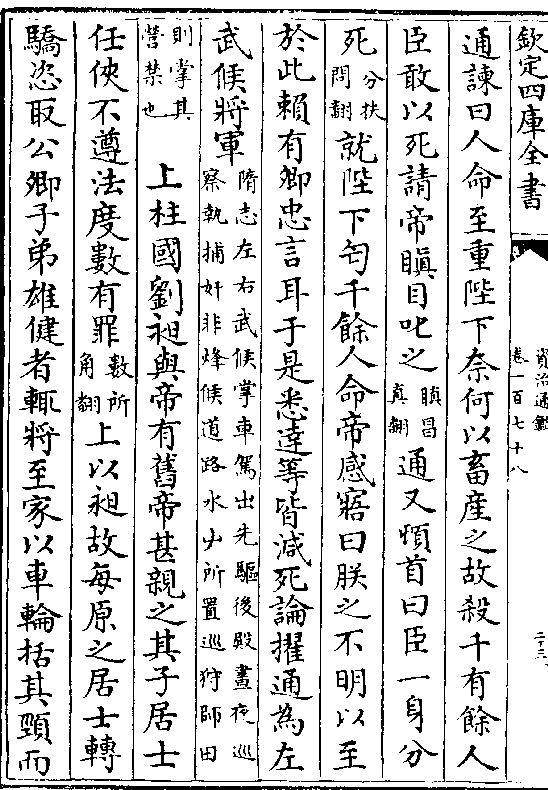 欽定四庫全書
資治通鑑
卷一百七十八
二十三
通諫曰人命至重陛下奈何以畜產之故殺千有餘人
臣敢以死請帝瞋目叱之瞋昌真翻通又頓首曰臣一身分
死分扶問翻就陛下匄千餘人命帝感寤曰朕之不明以至
於此賴有卿忠言耳于是悉達等皆減死論擢通為左
武候將軍隋志左右武候掌車駕出先驅後殿晝夜巡察執捕奸非烽候道路水艸所置巡狩師田
則掌其營禁也上柱國劉昶與帝有舊帝甚親之其子居士
任俠不遵法度數有罪數所角翻上以昶故每原之居士轉
驕恣取公卿子弟雄健者輒將至家以車輪括其頸而